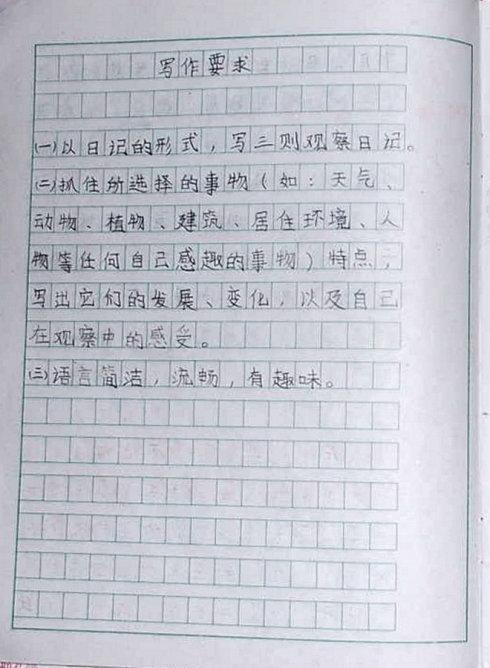 写作要求
(一)以日记的形式，写三则观察日记。
(二)抓住所选择的事物(如：天气、
动物、植物、建筑、居住环境、人
物等任何自己感趣的事物)特点，
写出它们的发展、变化，以及自己
在观察中的感受。
(三)语言简洁，流畅，有趣味。